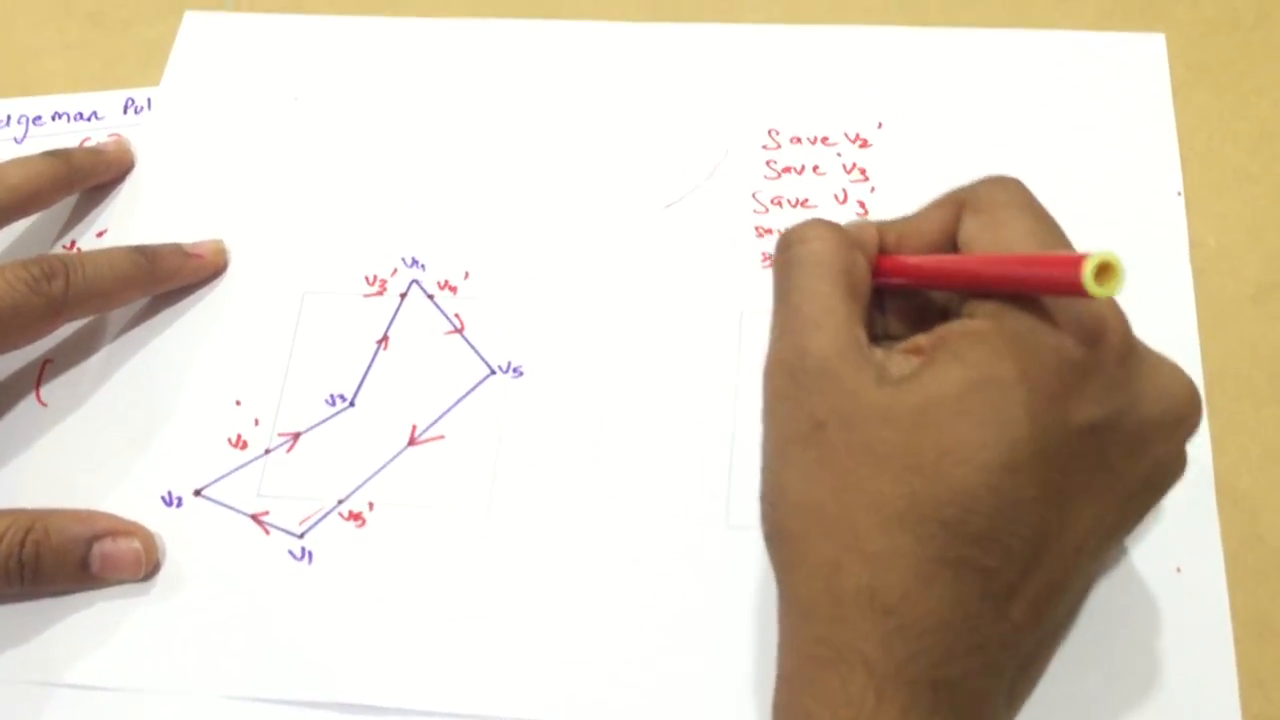 dgeman Pol
Save v2'
Save v3
Save v3'
v4
v3'
v4'
v5
v3
v2'
v2
v5'
v1